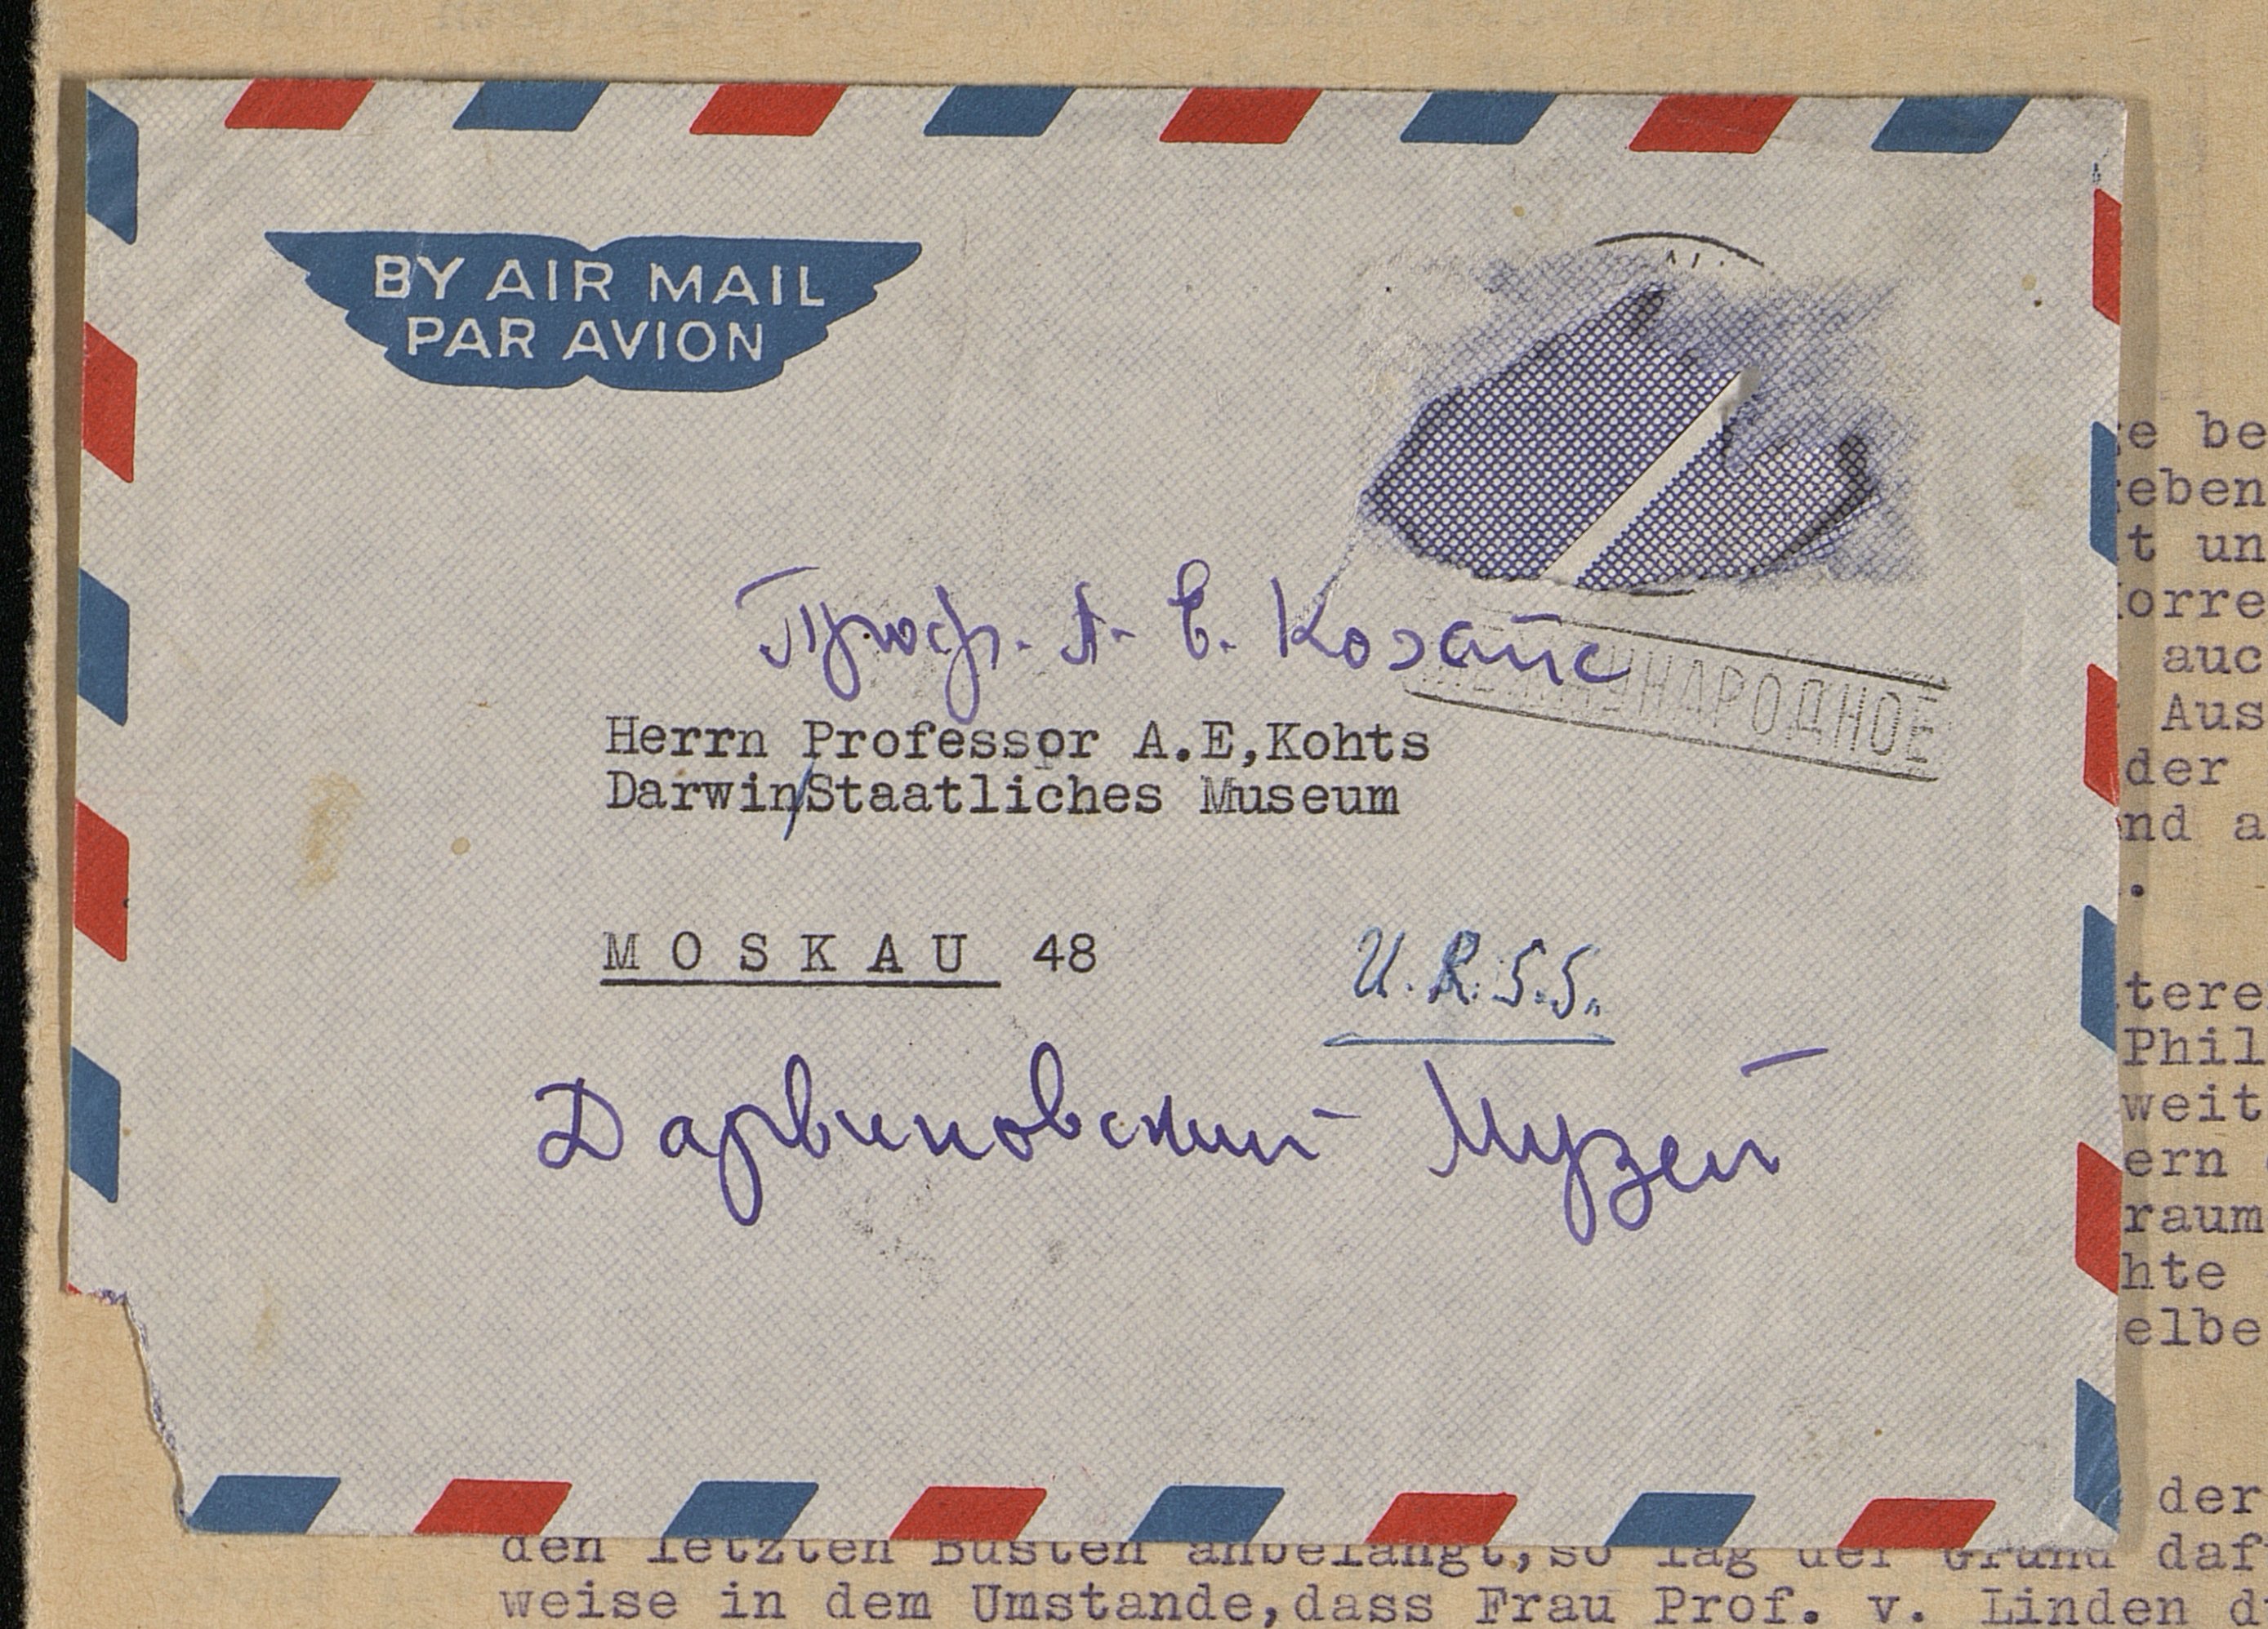 BY AIR MAIL
PAR AVION
Проф. А. Е. Коэатс
МЕЖДУНАРОДНОЕ
Herrn Professor A.E,Kohts
Darwin/Staatliches Museum
M O S K A U 48
U.R.S.S.
Дарвиновский Музей
be
eben
t un
orre
auc
Aus
der
nd a
.
tere
Phil
weit
ern
raum
hte
elbe
der
den letzten Büsten anbelangt,so lag der Grund daf
weise in dem Umstande,dass Frau Prof. v. Linden d